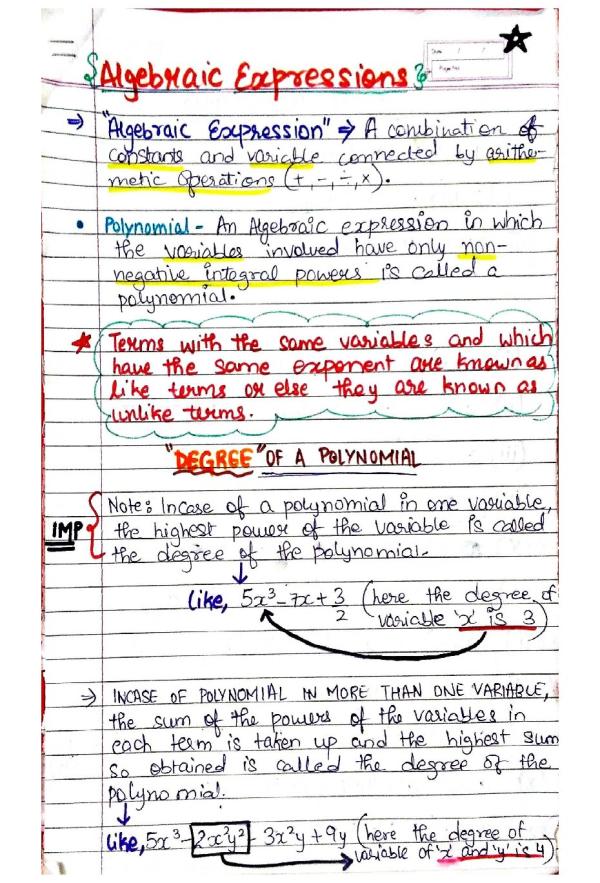 Algebraic Expressions
⇒ "Algebraic Expression" ⇒ A combination of
constants and variable connected by arithe-
metic operations (+, -, ÷, ×).
• Polynomial - An Algebraic expression in which
the variables involved have only non-
negative integral powers is called a
polynomial.
★ Terms with the same variables and which
have the same exponent are known as
like terms or else they are known as
unlike terms.
"DEGREE" OF A POLYNOMIAL
Note: Incase of a polynomial in one variable,
IMP the highest power of the variable is called
the degree of the polynomial.
like, 5x³ - 7x + 3/2 (here the degree of
variable 'x' is 3)
→ INCASE OF POLYNOMIAL IN MORE THAN ONE VARIABLE,
the sum of the powers of the variables in
each term is taken up and the highest sum
so obtained is called the degree of the
polynomial.
like, 5x³ - 2x²y² - 3x²y + 9y (here the degree of
variable of 'x' and 'y' is 4)